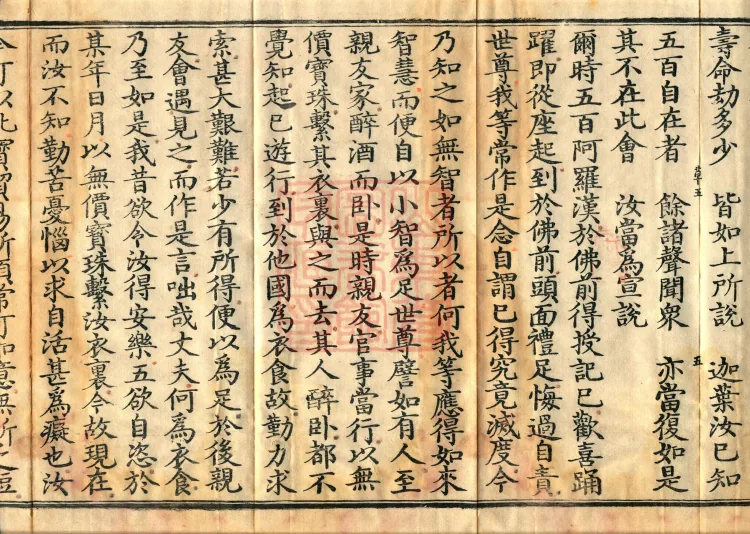 壽命劫多少　皆如上所說　迦葉汝已知
五百自在者　餘諸聲聞衆　亦當復如是
其不在此會　汝當爲宣說
爾時五百阿羅漢於佛前得授記已歡喜踊
躍即從座起到於佛前頭面禮足悔過自責
世尊我等常作是念自謂已得究竟滅度今
乃知之如無智者所以者何我等應得如來
智慧而便自以小智爲足世尊譬如有人至
親友家醉酒而臥是時親友官事當行以無
價寶珠繫其衣裏與之而去其人醉臥都不
覺知起已遊行到於他國爲衣食故勤力求
索甚大艱難若少有所得便以爲足於後親
友會遇見之而作是言咄哉丈夫何爲衣食
乃至如是我昔欲令汝得安樂五欲自恣於
某年日月以無價寶珠繫汝衣裏今故現在
而汝不知勤苦憂惱以求自活甚爲癡也汝
今可以此寶貿易所須常可如意無所乏短